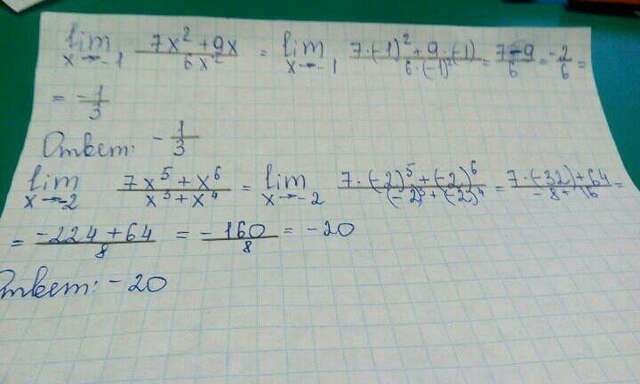 lim x→-1 (7x² + 9x)/(6x²) = lim x→-1 (7·(-1)² + 9·(-1))/(6·(-1)²) = (7-9)/6 = -2/6 =
= -1/3
Ответ: -1/3
lim x→-2 (7x⁵ + x⁶)/(x³ + x⁴) = lim x→-2 (7·(-2)⁵ + (-2)⁶)/((-2)³ + (-2)⁴) = (7·(-32) + 64)/(-8 + 16) =
= (-224 + 64)/8 = -160/8 = -20
Ответ: -20